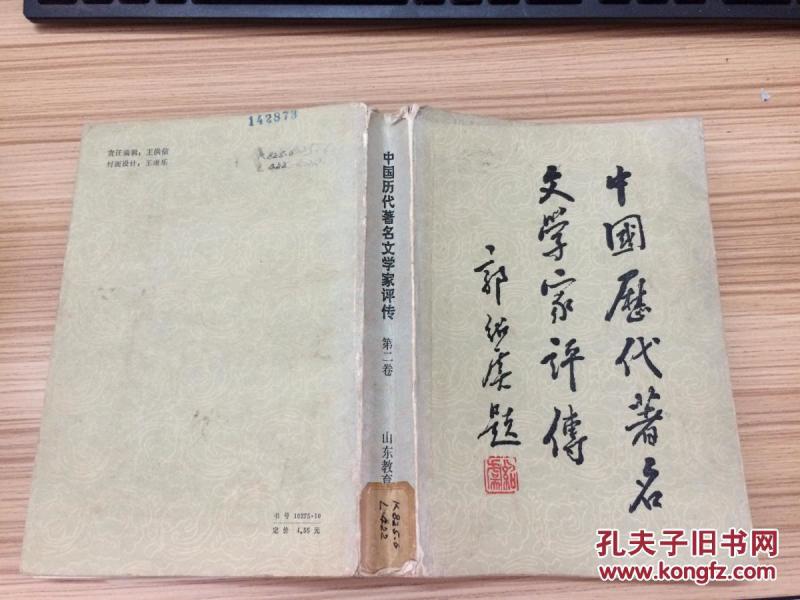 中國歷代著名
文學家評傳
郭紹虞題
中国历代著名文学家评传
第二卷
山东教育
K825.6
L422
142873
责任编辑：王洪信
封面设计：王承乐
书号 10275·10
定价 4.55元
孔夫子旧书网
www.kongfz.com